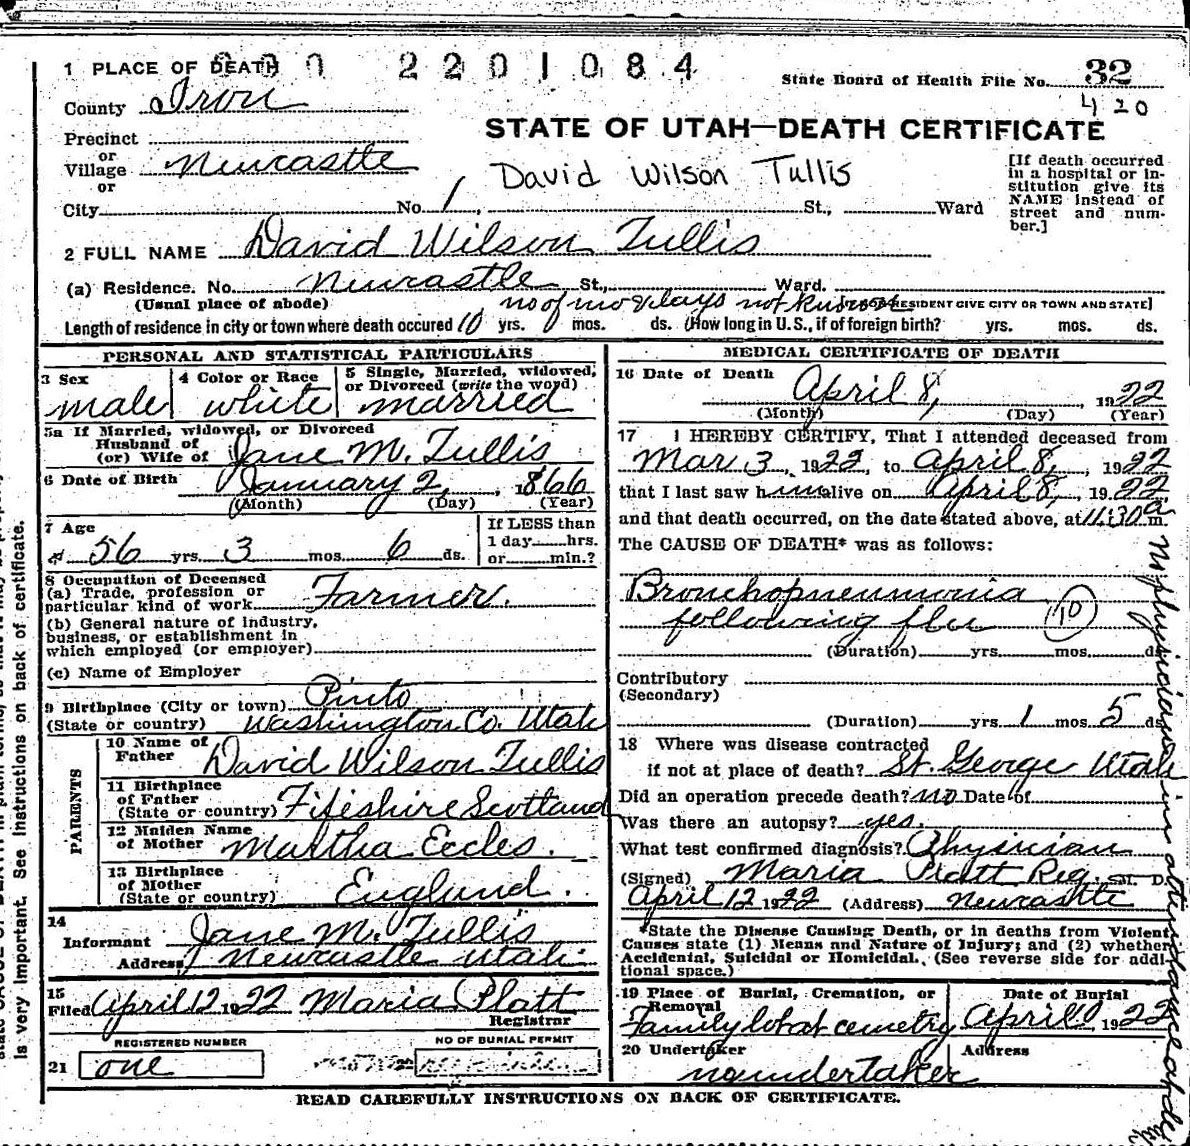 1 PLACE OF DEATH
2201084
State Board of Health File No. 32
420
County Iron
STATE OF UTAH—DEATH CERTIFICATE
Precinct
or
Village Newcastle
or
David Wilson Tullis
[If death occurred in a hospital or institution give its NAME instead of street and number.]
City No. 1, St., Ward
2 FULL NAME David Wilson Tullis
(a) Residence. No. Newcastle St., Ward.
(Usual place of abode) no of mo & days not known RESIDENT GIVE CITY OR TOWN AND STATE]
Length of residence in city or town where death occured 10 yrs. mos. ds. (How long in U.S., if of foreign birth? yrs. mos. ds.
PERSONAL AND STATISTICAL PARTICULARS
3 Sex
male
4 Color or Race
white
5 Single, Married, widowed, or Divorced (write the word)
married
5a If Married, widowed, or Divorced
Husband of
(or) Wife of Jane M. Tullis
6 Date of Birth January 2, 1866
(Month) (Day) (Year)
7 Age
56 yrs. 3 mos. 6 ds.
If LESS than
1 day hrs.
or min.?
8 Occupation of Deceased
(a) Trade, profession or
particular kind of work Farmer.
(b) General nature of industry,
business, or establishment in
which employed (or employer)
(c) Name of Employer
9 Birthplace (City or town) Pinto
(State or country) Washington Co. Utah
PARENTS
10 Name of
Father David Wilson Tullis
11 Birthplace
of Father
(State or country) Fifeshire Scotland
12 Maiden Name
of Mother Martha Eccles.
13 Birthplace
of Mother
(State or country) England.
14
Informant Jane M. Tullis
Address Newcastle Utah.
15
Filed April 12 1922 Maria Platt
Registrar
REGISTERED NUMBER NO OF BURIAL PERMIT
21 one
MEDICAL CERTIFICATE OF DEATH
16 Date of Death April 8, 1922
(Month) (Day) (Year)
17 I HEREBY CERTIFY, That I attended deceased from
Mar 3, 1922, to April 8, 1922
that I last saw him alive on April 8, 1922
and that death occurred, on the date stated above, at 11:30 a m.
The CAUSE OF DEATH* was as follows:
Bronchopneumonia
following flu 10
(Duration) yrs. mos. ds.
Contributory
(Secondary)
(Duration) yrs. 1 mos. 5 ds.
18 Where was disease contracted
if not at place of death? St. George Utah
Did an operation precede death? no Date of
Was there an autopsy? yes.
What test confirmed diagnosis? Physician
(Signed) Maria Platt Reg. M. D.
April 12 1922 (Address) Newcastle
*State the Disease Causing Death, or in deaths from Violent
Causes state (1) Means and Nature of Injury; and (2) whether
Accidental, Suicidal or Homicidal. (See reverse side for additional space.)
19 Place of Burial, Cremation, or
Removal
Family lot at cemetry
Date of Burial
April 1922
20 Undertaker
no undertaker
Address
No physician in attendance
READ CAREFULLY INSTRUCTIONS ON BACK OF CERTIFICATE.
is very important. See instructions on back of certificate.